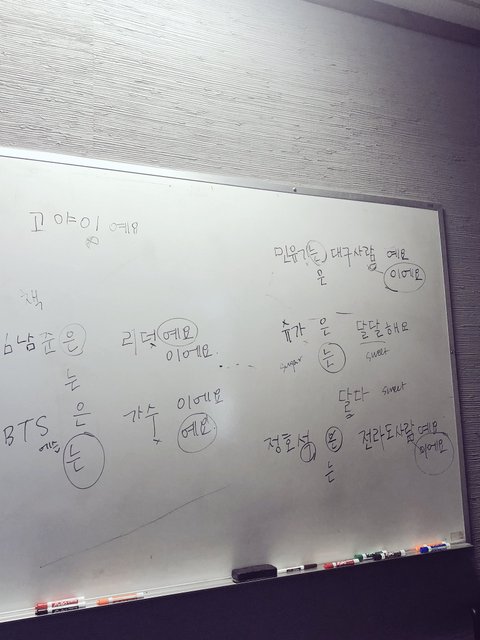 고 야이 예요
책
김남준 은 리더 예요
는 이에요
BTS 은 가수 이에요
에스 는 예요
민유기 는 대구사람 예요
은 이에요
슈가 은 달달해요
sugar 는 sweet
달다 sweet
정호석 은 전라도사람 예요
는 이에요